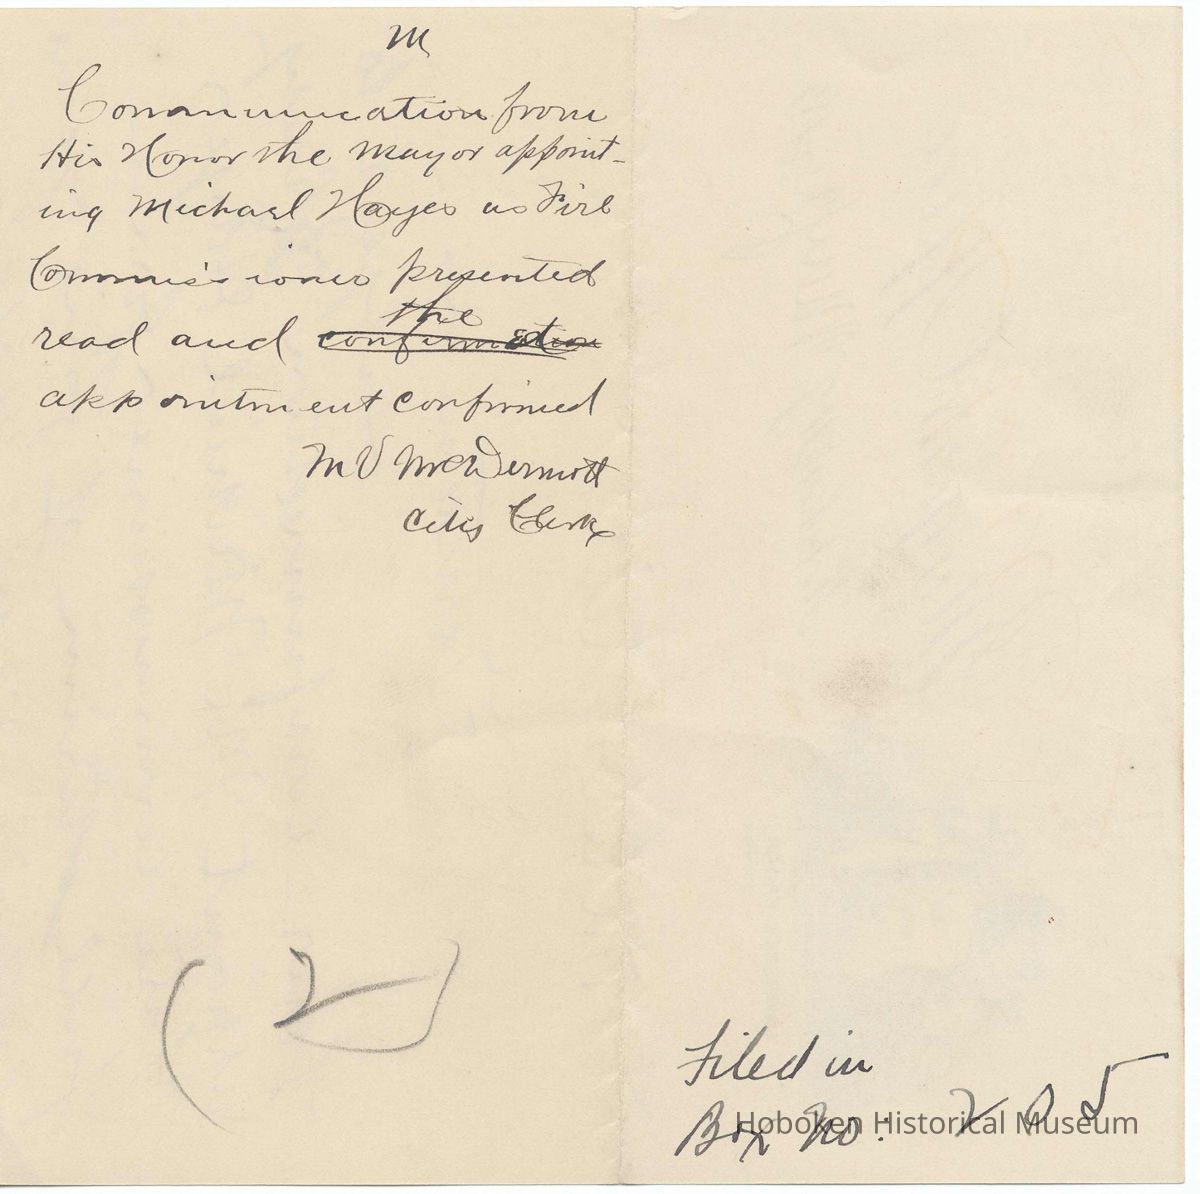 M
Communication from
His Honor the Mayor appoint-
ing Michael Hayes as Fire
Commissioner presented
the
read and confirmation
appointment confirmed
M V McDermott
City Clerk
(2)
Filed in
Box No: 205
Hoboken Historical Museum